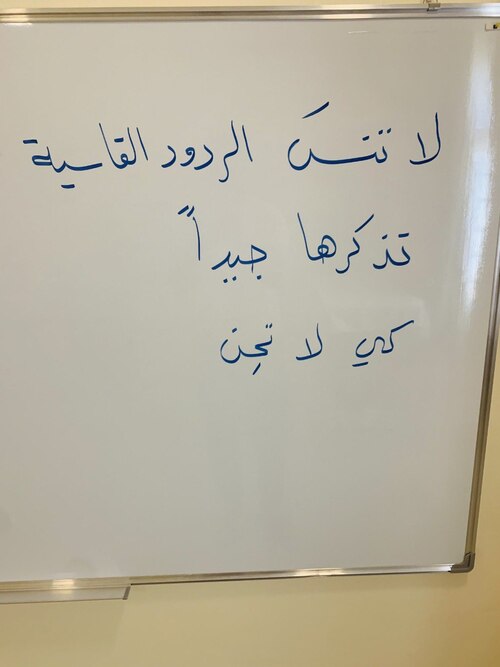 لا تنسَ الردود القاسية
تذكرها جيداً
كي لا تحِن